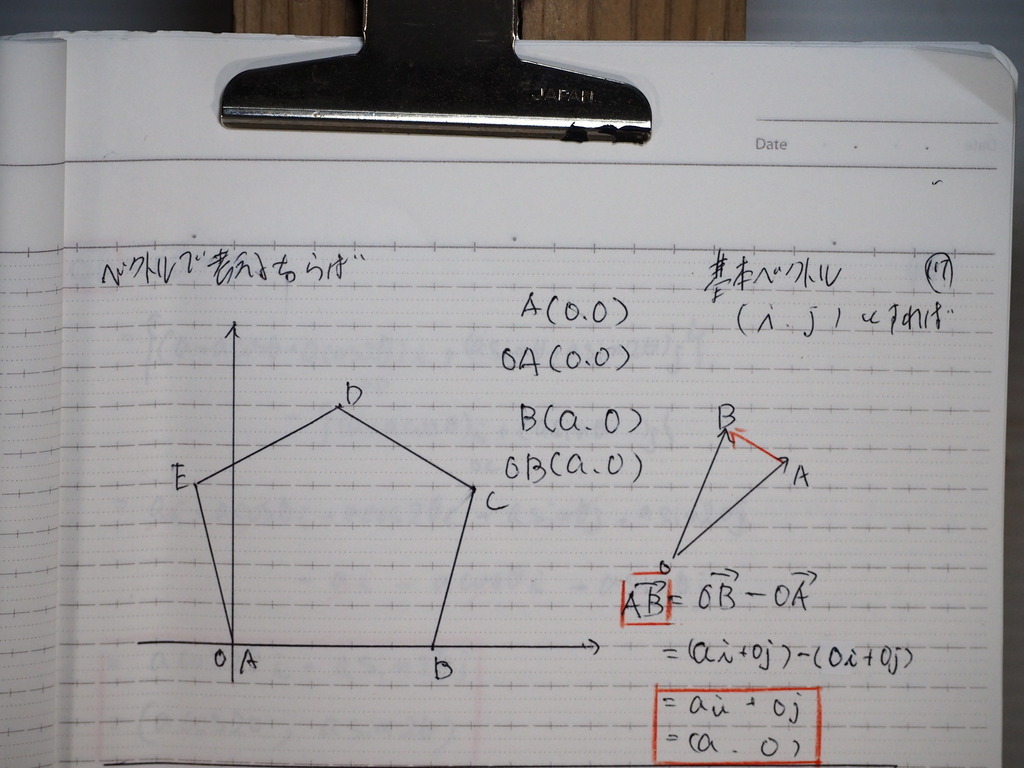 JAPAN
Date
ベクトルで考えるならば
基本ベクトル ⑰
(i.j)とすれば
A(0.0)
OA(0.0)
B(a.0)
OB(a.0)
D
E
C
O A
B
B
A
O
AB = OB - OA
= (ai+0j)-(0i+0j)
= ai + 0j
= (a. 0)